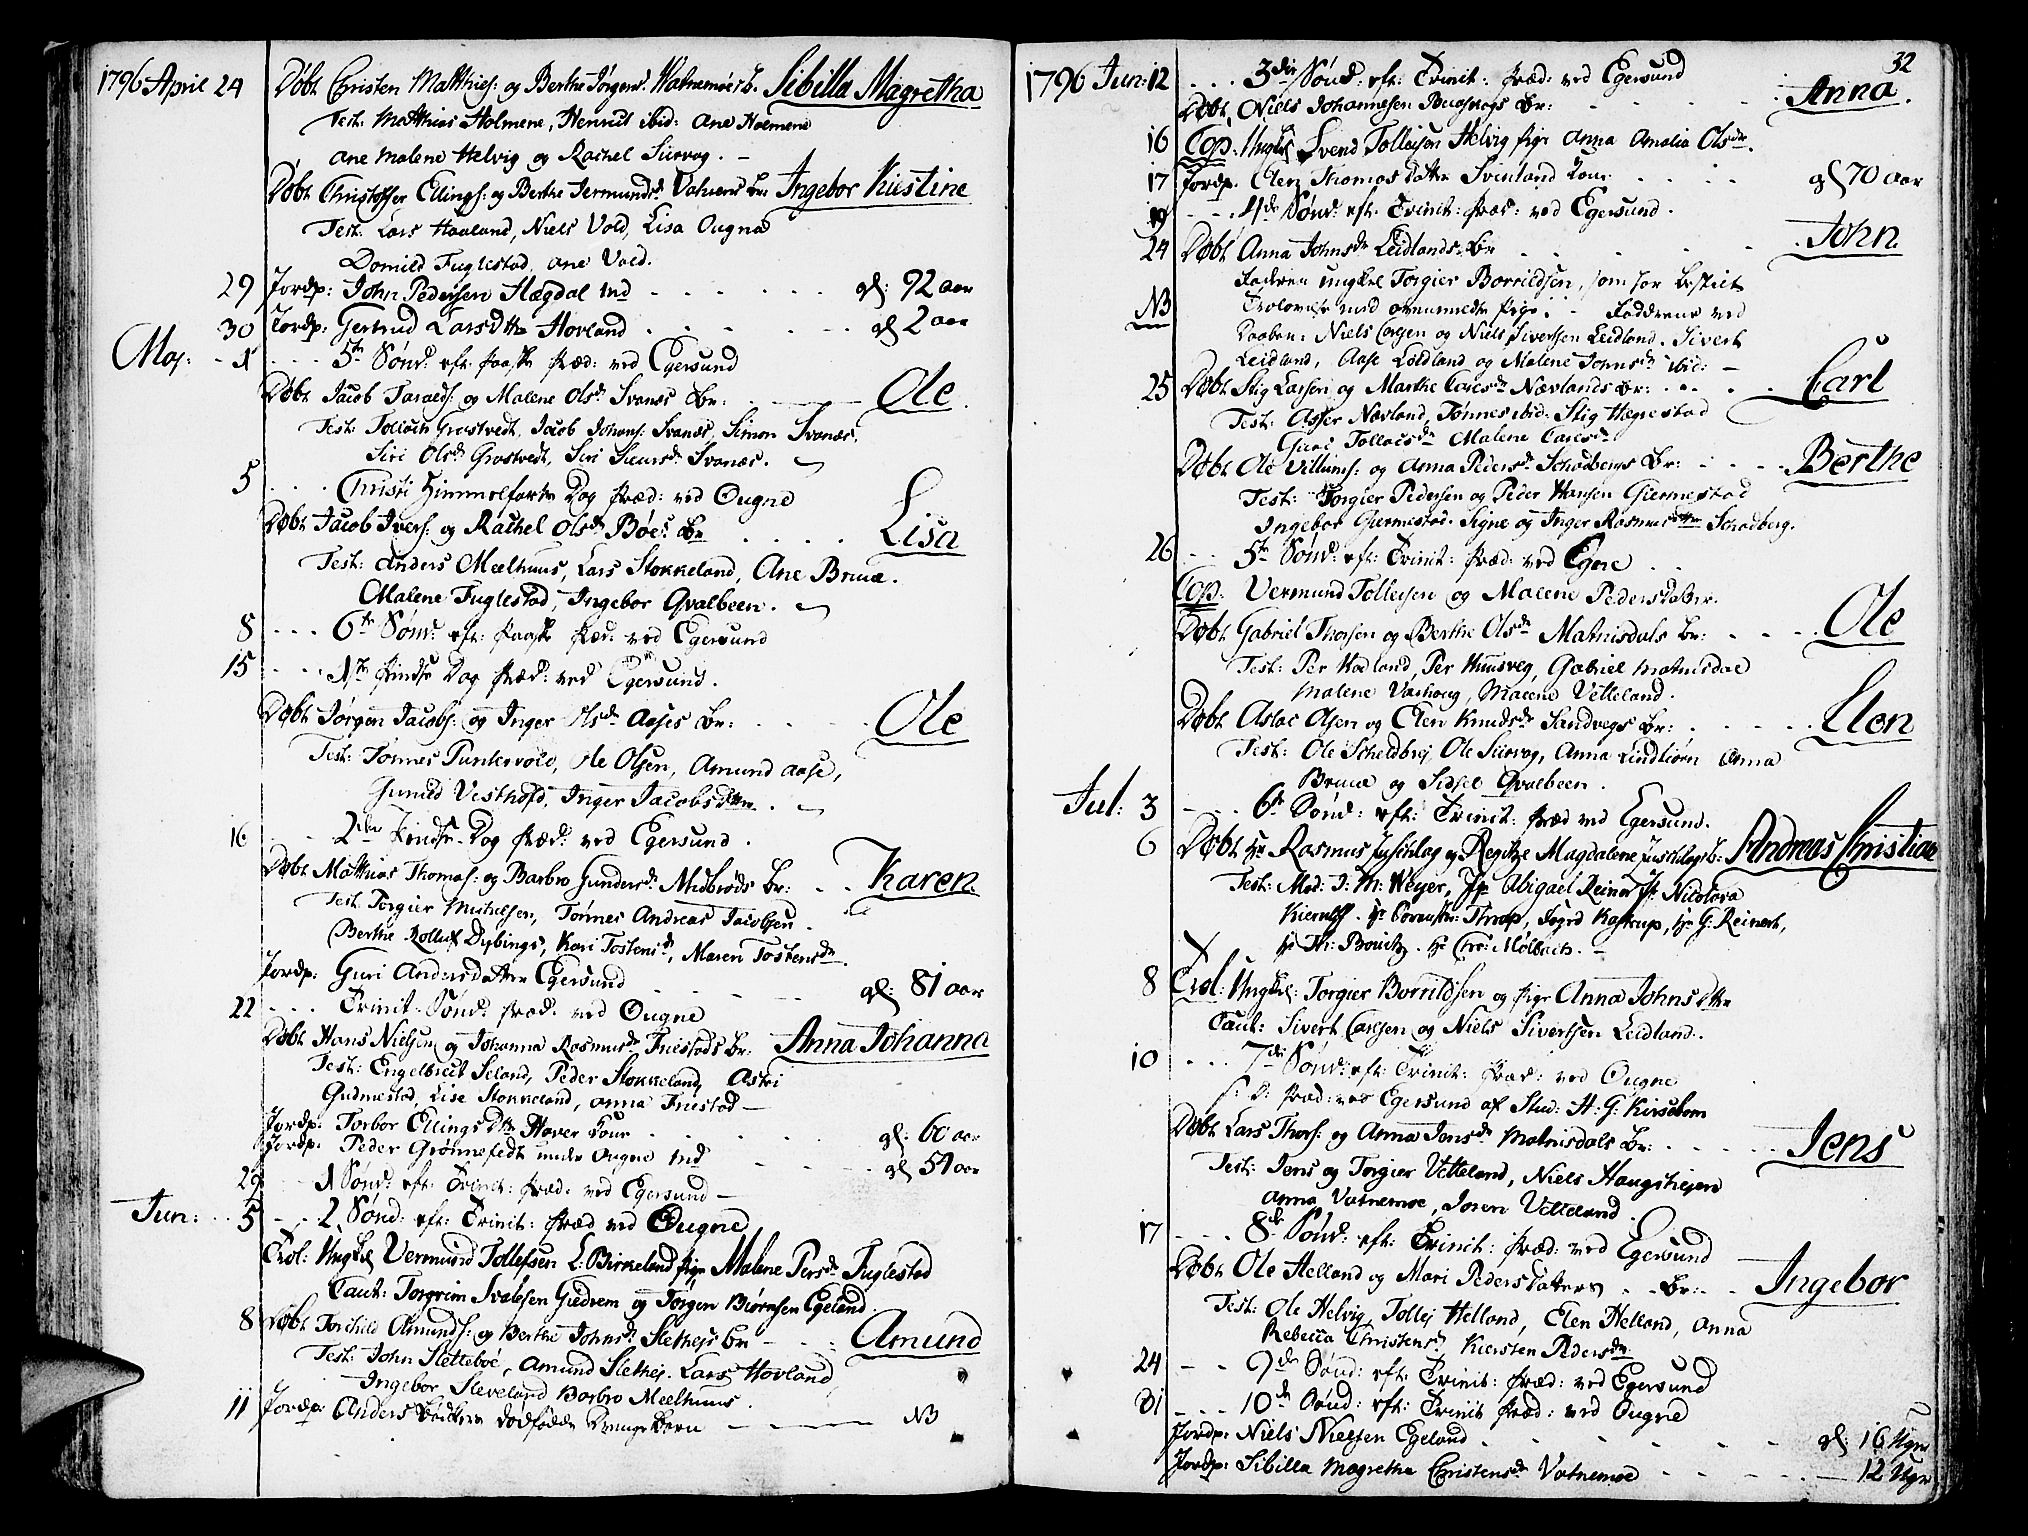 1796 April 24 Døbt Christen Matthies: og Berthe Jørgens: Watnemoes b. Sibilla Magretha
Test: Matthias Holmene, Henric ibid: Ane Holmene
Ane Malene Helvig og Rachel Siirvog. —
Døbt Christoffer Ellings: og Berthe Jermunds dr Br: Ingebor Kirstine
Test: Lars Haaland, Niels Vold, Lisa Ougna
Domild Fuglestad, Ane Vold.
29 Jordp: John Pedersen Slægdal Ind - - - gl: 92 aar
30 Jordp: Gertrud Larsdttr Hovland - - - gl 2 aar
Maj: - 1 - - - 5te Sønd: eft: Paaske Præd: ved Egersund
Døbt Jacob Taralds: og Malene Olsdr Svanæs Br: - - Ole
Test: Tollach Grostvedt, Jacob Johans: Svanæs, Simon Svanæs,
Siri Olsdr Grostvedt, Siri Siursdr Svanæs.
5 - - - Christi Himmelfarts Dag Præd: ved Ougne
Døbt Jacob Ivers: og Rachel Olsdr Bøes Br - - - Lisa
Test: Anders Mælhuus, Lars Stokkeland, Ane Brue.
Malene Fuglestad, Ingebor Qvalbeen.
8 - - - 6te Sønd: eft: Paaske Præd: ved Egersund
15 - - - 1ste Pindse Dag Præd: ved Egersund.
Døbt Jørgen Jacobs: og Inger Olsdr Aases Br: - - - Ole
Test: Tønnes Puntervold, Ole Olsen, Amund Aase,
Gunild Vesthofd, Inger Jacobsdttr.
16 - - 2den Pindse Dag Præd: ved Egersund.
Døbt Matthias Thomas: og Barbro Gundersdr Midbrøds Br: - - Karen.
Test: Torgier Michelsen, Tønnes Andreas Jacobsen.
Berthe Rollef Dybings, Kari Tostensdr, Maren Tostensdr.
Jordp: Guri Andersdatter Egersund - - - gl: 81 aar
22 - - - Trinit: Sønd: Præd: ved Ougne
Døbt Hans Nielsen og Johanna Rasmusdr Friestads Br: Anna Johanna
Test: Engelbrect Seland, Peder Stokkeland, Astri
Gudmestad, Lise Stokkeland, Anna Friestad —
Jordp: Torbor Ellings Dttr Hover Kone - - - gl: 60 aar
Jordp: Peder Grønnefedt under Ougne Ind - - - gl 54 aar
29 - - 1 Sønd: eft: Trinit: Præd: ved Egersund —
Jun: - - 5 - - 2 Sønd: eft: Trinit: Præd ved Ougne
Trol: Ungkl Vermund Tollefsen L: Birkeland Pige Malene Persdr Fuglestad
Caut: Torgrim Ivalsen Giedrem og Jørgen Biørnsen Egeland.
8 Døbt Torchild Amunds: og Berthe Johnsdr Sletheis Br - - Amund
Test: John Slettebøe, Amund Slethej. Lars Hovland,
Ingebor Sleveland Barbro Meelhuus.
11 Jordp: Anders dødfødde Drengebarn - - - NB
32
1796 Jun: 12 - - - 3die Sønd: eft: Trinit: Præd: ved Egersund
Døbt Niels Johannesen Br: - - - Anna.
16 Cop: Ungkl Svend Tollachsen Helvig Pige Anna Amalia Olsdr.
17 Jordp: Elen Thomas datter Svenland Kone - - - gl 70 aar
19 - - - 4de Sønd: eft: Trinit: Præd: ved Egersund.
24 Døbt Anna Johnsdr Leidlands Br - - - John.
Faderen ungkel Torgier Borrildsen, som har bestilt
NB Trolovelse med ovenmeldte Pige. - Faddrene ved
Daaben: Niels Carlsen og Niels Sivertsen Leidland. Sivert
Leidland, Aase Leidland og Malene Johnsdr ibid: —
25 Døbt Stig Larsen og Marthe Carlsdr Nævlands Br: - - - Carl
Test: Asser Nævland, Tønnes ibid: Stig Hegrestad
Guri Tollacsdr Malene Carlsdr
Døbt Ole Villums: og Anna Pedersdr Schadbergs Br: - - - Berthe
Test: Torgier Pedersen og Peder Hansen Giermestad
Ingebor Giermestad. Signe og Inger Rasmusdttr Schadberg.
26 - - 5te Sønd: eft: Trinit: Præd: ved Egere - -
Cop. Vermund Tollefsen og Malene Pedersdatter.
Døbt Gabriel Thorsen og Berthe Olsdr Matnisdals Br: - - - Ole
Test: Per Hadland, Per Huusveg, Gabriel Matnisdal
Malene Varhoug, Malene Vetteland.
Døbt Aslac Olsen og Elen Knudsdr Sandvegs Br: - - - Elen
Test: Ole Scheldbrej, Ole Siirvog, Anna Lindtiørn Anna
Brue og Sidsel Qvalbeen.
Jul: 3 - - - 6te Sønd: eft: Trinit: Præd ved Egersund.
6 Døbt Hr Rasmus og Regitze Magdalene b: Andreas Christian
Test: Mad: I: M: Weyer, Jfr Abigael Reiner Jfr Nicolova
Kierulff. Hr Thrap, Sogrd Kastrup, Hr G: Reinert,
Hr Th: Bowitz. Hr Chr: Mølbach. —
8 Trol: Ungkl: Torgier Borrildsen og Pige Anna Johnsdttr
Caut: Sivert Carlsen og Niels Sivertsen Leidland.
10 - - - 7de Sønd: eft: Trinit: Præd: ved Ougne
S: D: Præd: ved Egersund af Stud: H: G: Kirsebom
Døbt Lars Thors: og Anna Jonsdr Matnisdals Br: - - - Jens
Test: Jens og Torgier Vetteland, Niels Haugstiejen
Anna Vatnemoe, Joren Vetteland.
17 - - - 8de Sønd: eft: Trinit: Præd: ved Egersund
Døbt Ole Helland og Mari Pedersdatters - - Br: - - Ingebor
Test: Ole Helvig, Tollej Helland, Elen Helland, Anna
Rebecca Christensdr, Kiersten Pedersdr
24 - - 9de Sønd: eft: Trinit: Præd: ved Egersund
31 - - - 10de Sønd: eft: Trinit Præd: ved Ougne
Jordp: Niels Nielsen Egeland - - - gl: 16 Uger
Jordp: Sibilla Magretha Christensdr Vatnemoe - - - 12 Uger